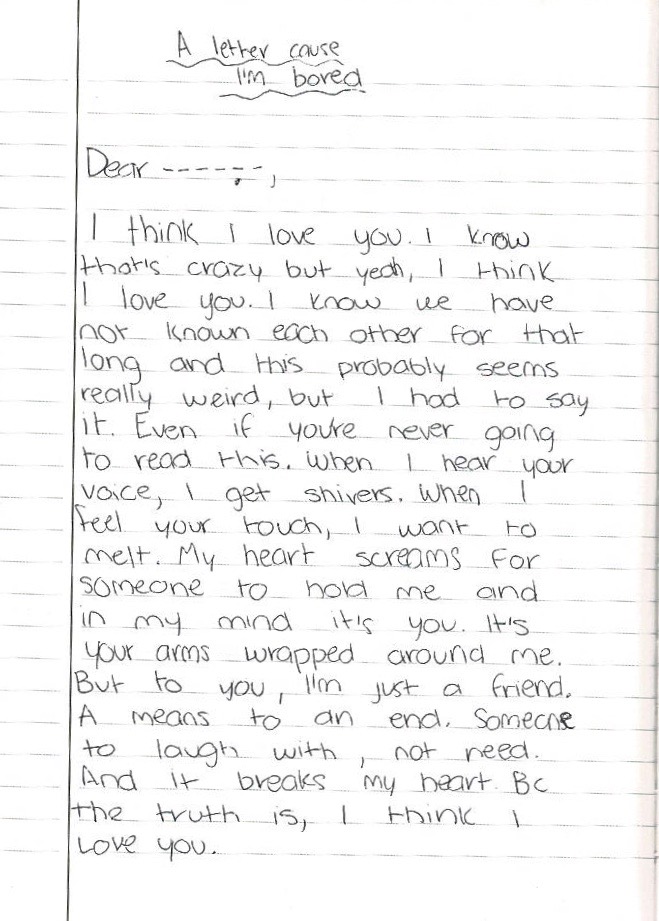 A letter cause
I'm bored
Dear ------,
I think I love you. I know
that's crazy but yeah, I think
I love you. I know we have
not known each other for that
long and this probably seems
really weird, but I had to say
it. Even if you're never going
to read this. When I hear your
voice, I get shivers. When I
feel your touch, I want to
melt. My heart screams for
someone to hold me and
in my mind it's you. It's
your arms wrapped around me.
But to you, I'm just a friend.
A means to an end. Someone
to laugh with, not need.
And it breaks my heart. Bc
the truth is, I think I
Love you.